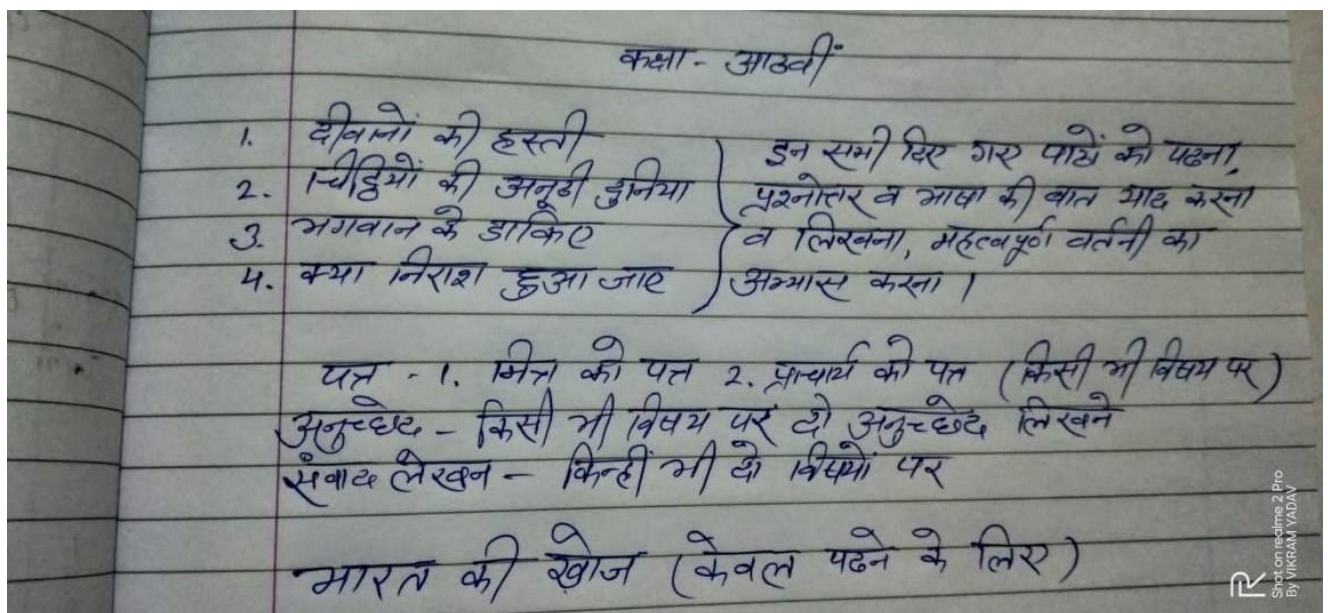 कक्षा - आठवीं
1. दीवानों की हस्ती
2. चिट्ठियों की अनूठी दुनिया
3. भगवान के डाकिए
4. क्या निराश हुआ जाए
इन सभी दिए गए पाठों को पढना,
प्रश्नोत्तर व भाषा की बात याद करना
व लिखना, महत्वपूर्ण वर्तनी का
अभ्यास करना ।
पत्र - 1. मित्र को पत्र 2. प्राचार्य को पत्र (किसी भी विषय पर)
अनुच्छेद - किसी भी विषय पर दो अनुच्छेद लिखने
संवाद लेखन - किन्हीं भी दो विषयों पर
भारत की खोज (केवल पढने के लिए)
Shot on realme 2 Pro
By VIKRAM YADAV